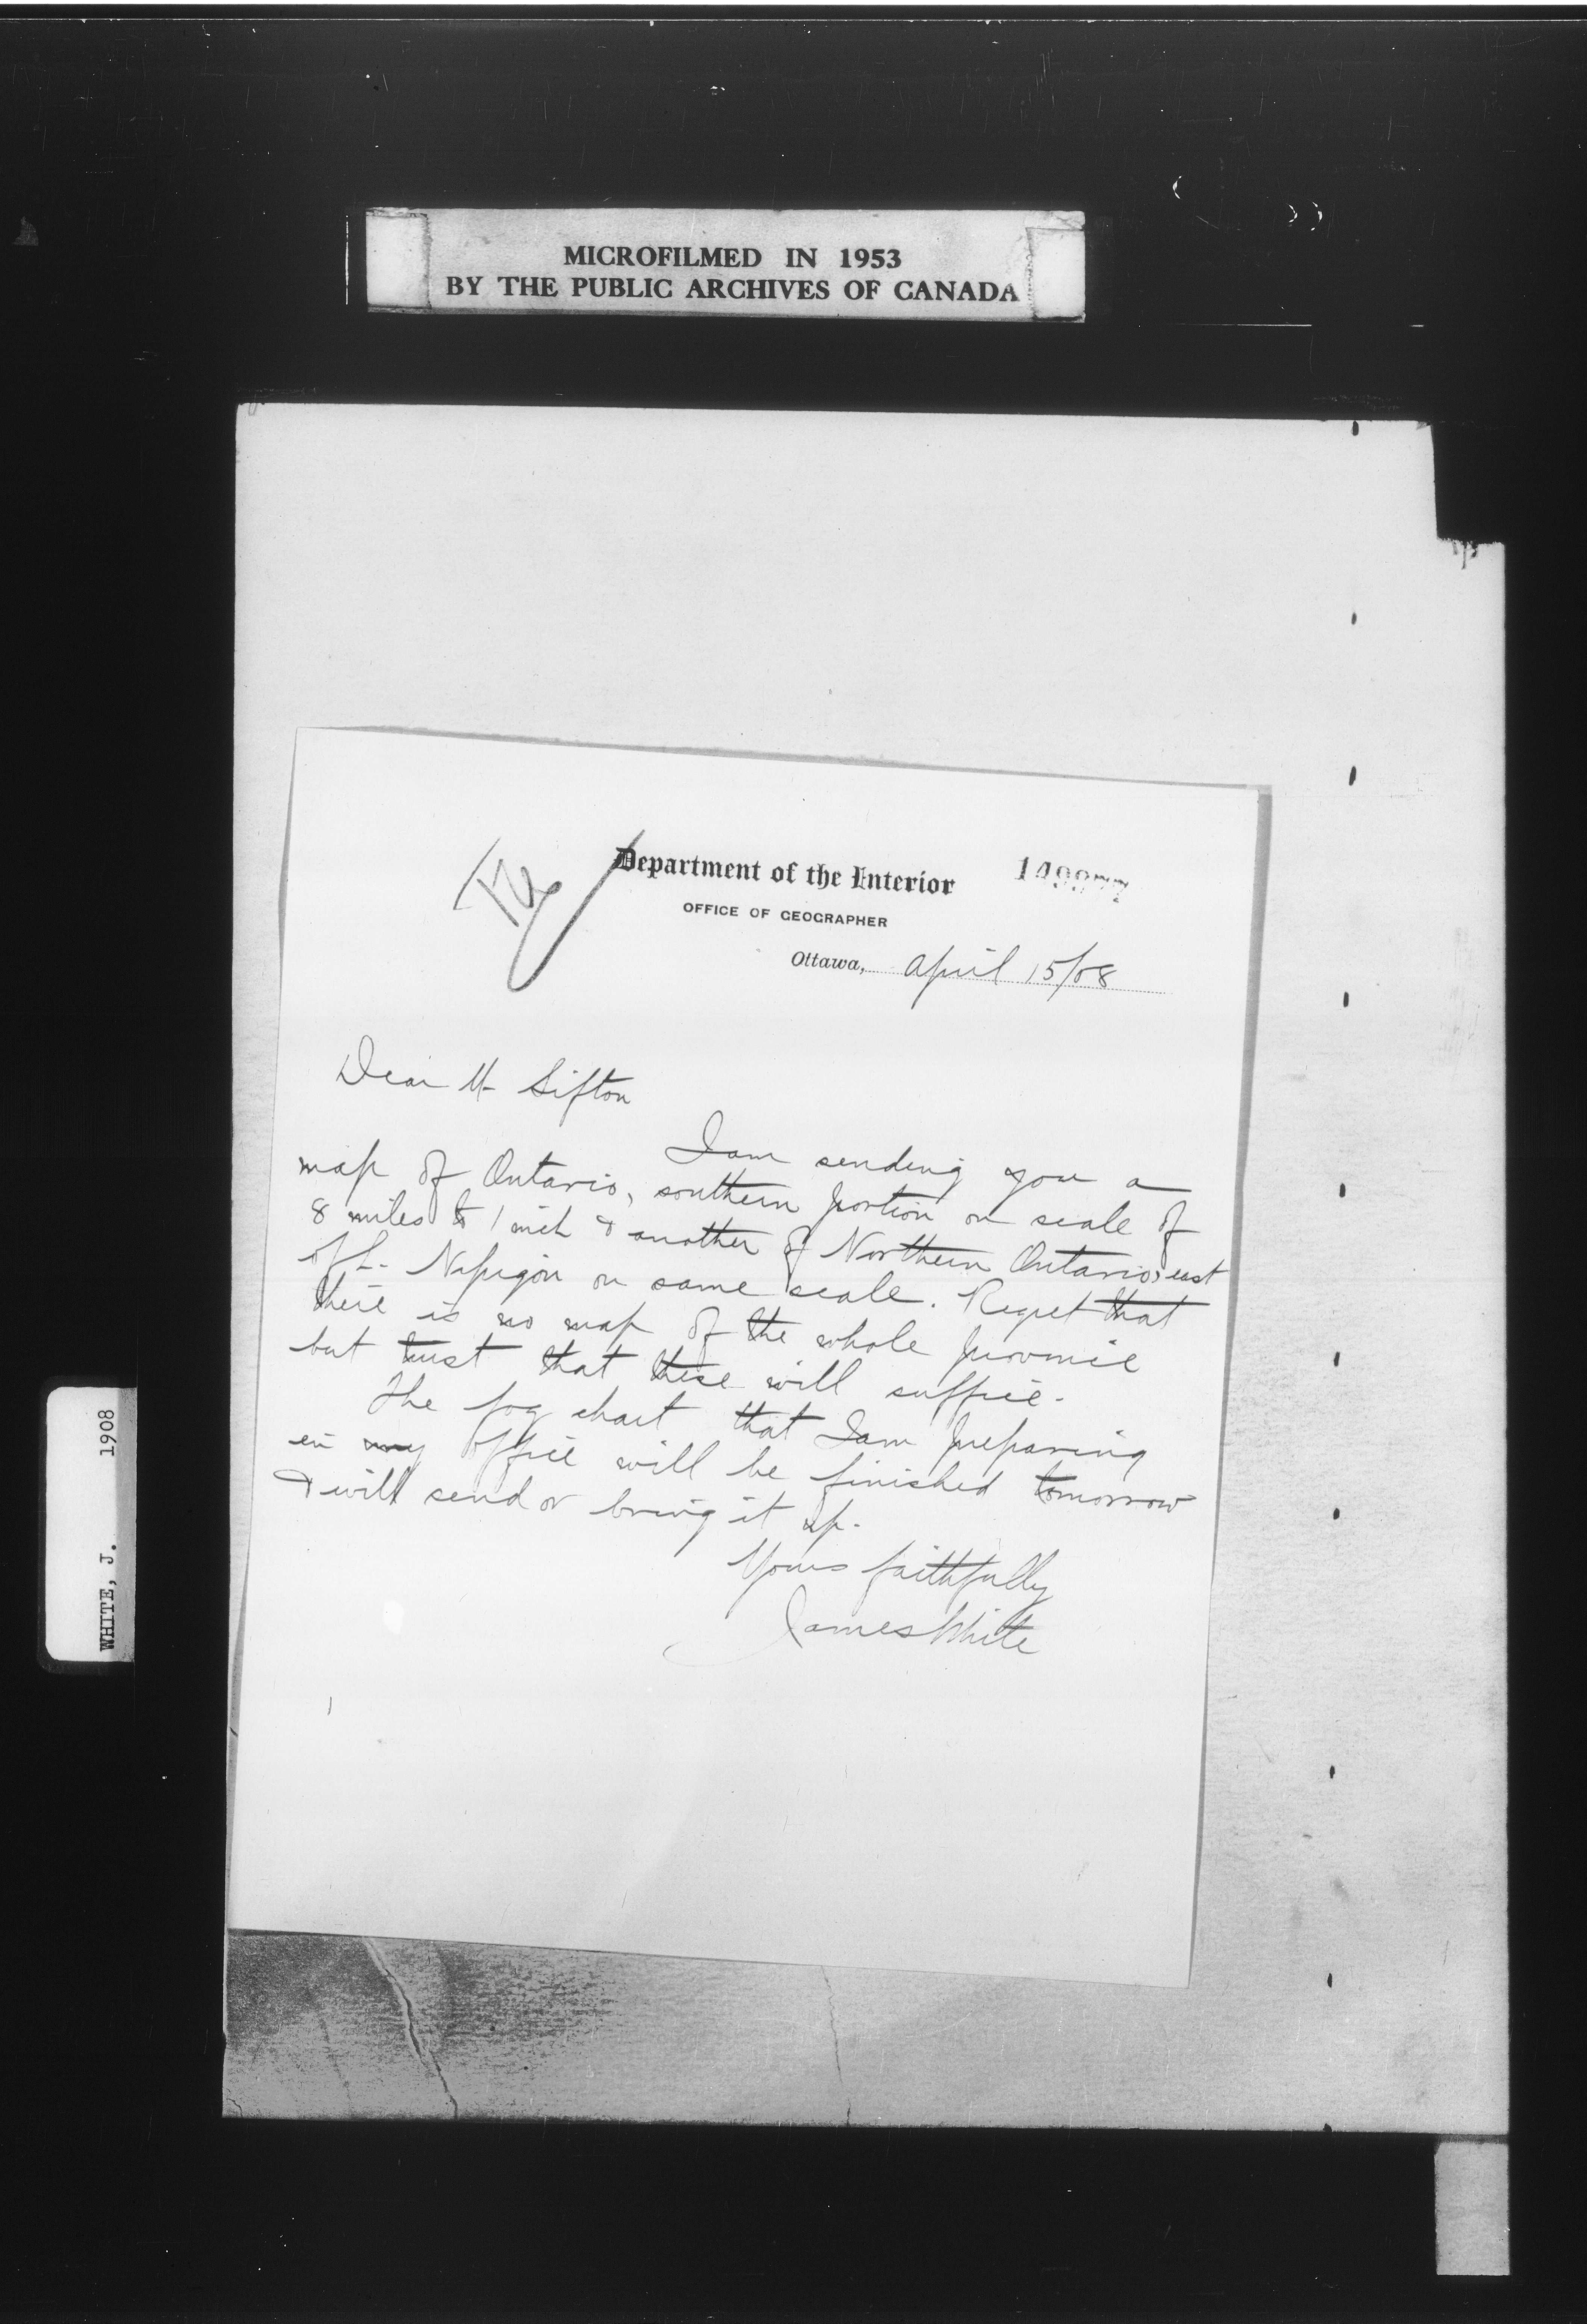 MICROFILMED IN 1953
BY THE PUBLIC ARCHIVES OF CANADA
Department of the Interior
OFFICE OF GEOGRAPHER
Ottawa, April 15/08
Dear Mr Sifton
I am sending you a
map of Ontario, southern portion on scale of
8 miles to 1 inch & another of Northern Ontario, east
of L. Nipigon on same scale. Regret that
there is no map of the whole province
but trust that these will suffice.
The fog chart that I am preparing
in my office will be finished tomorrow
& will send or bring it up.
Yours faithfully
James White
WHITE, J. 1908